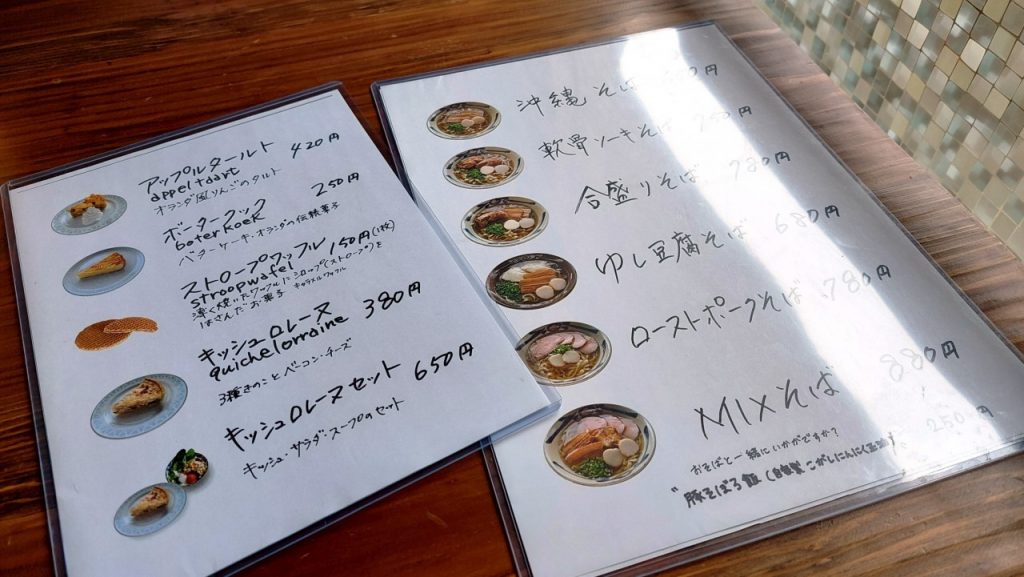 アップルタールト 420円
appeltaart
オランダ風りんごのタルト
ボータークック 250円
boterkoek
バターケーキ・オランダの伝統菓子
ストロープワッフル 150円(1枚)
stroopwafel
薄く焼いたワッフルにシロップ(ストロープ)を
はさんだお菓子 キャラメルワッフル
キッシュロレーヌ 380円
quichelorraine
3種きのことベーコン・チーズ
キッシュロレーヌセット 650円
キッシュ・サラダ・スープのセット
沖縄そば 円
軟骨ソーキそば 円
合盛りそば 780円
ゆし豆腐そば 680円
ローストポークそば 780円
MIXそば 880円
おそばと一緒にいかがですか?
豚そぼろ飯 (自家製 こがしにんにく 250円